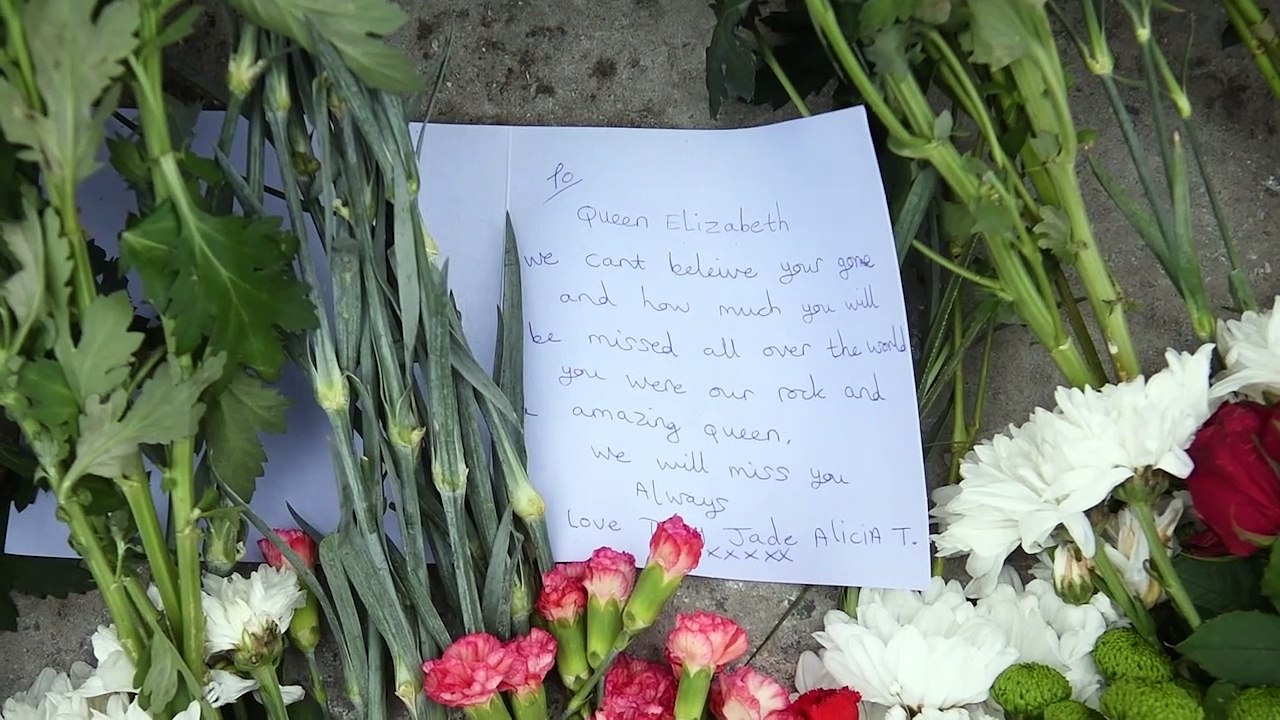 To
Queen Elizabeth
we cant beleive your gone
and how much you will
be missed all over the world
you were our rock and
amazing queen.
we will miss you
Always
Love Jade Alicia T.
xxxxx